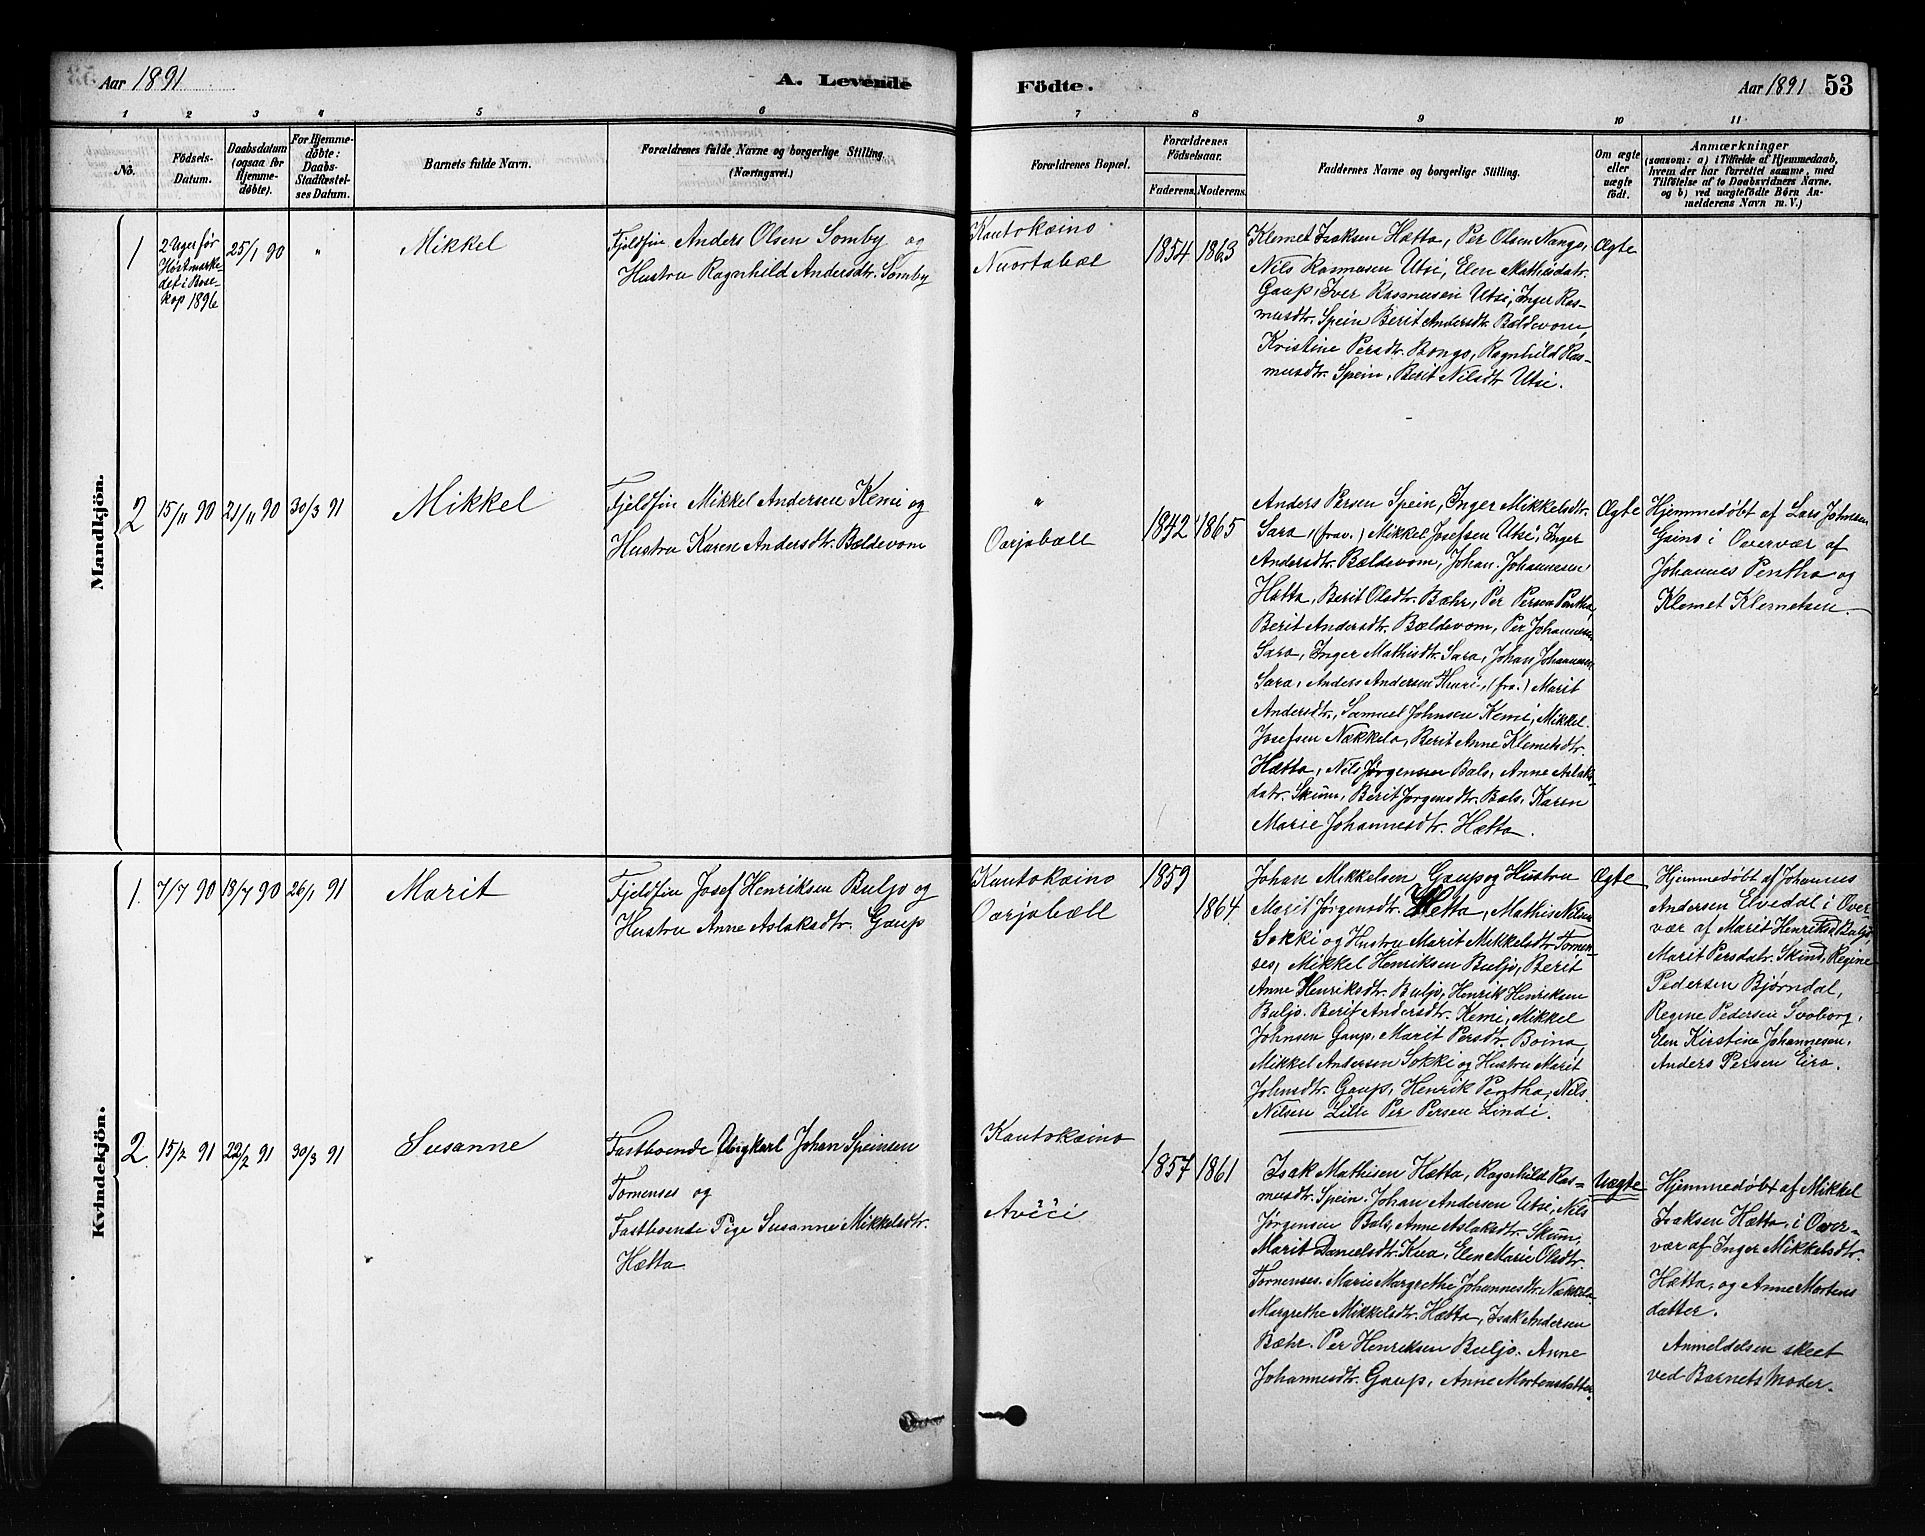 Aar 1891
A. Levende
Födte.
Aar 1891
53
1
2
3
4
5
6
7
8
9
10
11
No.
Födsels-
Datum.
Daabsdatum
(ogsaa for
Hjemme-
døbte).
For Hjemme-
døbte:
Daabs-
Stadfæstel-
ses Datum.
Barnets fulde Navn.
Forældrenes fulde Navne og borgerlige Stilling
(Næringsvei.)
Forældrenes Bopæl.
Forældrenes
Födselsaar.
Faderens.
Moderens.
Faddernes Navne og borgerlige Stilling.
Om ægte
eller
uægte
født.
Anmærkninger
(saasom: a) i Tilfælde af Hjemmedaab,
hvem der har forrettet samme, med
Tilföielse af to Daabsvidners Navne.
og b) ved uægtefödte Börn An-
melderens Navn m. V.)
Mandkjön.
1
2 Uger før
Høstmarke-
det i Bose-
kop 1896
25/1 90
"
Mikkel
Fjeldfin Anders Olsen Somby og
Hustru Ragnhild Andersdtr. Somby
Kautokeino
Nuortabæl
1854
1863
Klemet Isaksen Hætta, Per Olsen Nango,
Nils Rasmusen Utsi, Elen Mathisdatr.
Gaup, Iver Rasmusen Utsi, Inger Ras-
musdtr. Spein Berit Andersdtr. Bældevom,
Kristine Persdtr. Bongo, Ragnhild Ras-
musdtr. Spein, Berit Nilsdtr Utsi.
Ægte
2
15/11 90
21/11 90
30/3 91
Mikkel
Fjeldfin Mikkel Andersen Kemi og
Hustru Karen Andersdtr. Bældevom
"
Oarjabæll
1842
1865
Anders Persen Spein, Inger Mikkelsdtr.
Sara, (frav.) Mikkel Josefsen Utsi, Inger
Andersdtr. Bældevom, Johan Johannesen
Hætta, Berit Olsdtr. Bæhr, Per Persen Pentha,
Berit Andersdtr. Bældevom, Per Johannesen
Sara, Inger Mathisdtr. Sara, Johan Johannesen
Sara, Anders Andersen (fra.) Marit
Andersdtr., Samuel Johnsen Kemi, Mikkel
Josefsen Nækkela, Berit Anne Klemetsdtr.
Hætta, Nils Jørgensen Bals, Anne Aslaks-
datr. Skum, Berit Jørgensdtr. Bals, Karen
Marie Johannesdtr. Hætta.
Ægte
Hjemmedøbt af Lars Johnsen
Gaino i Overvær af
Johannes Pentha og
Klemet Klemetsen.
Kvindekjön.
1.
7/7 90
13/7 90
26/1 91
Marit
Fjeldfin Josef Henriksen Buljo og
Hustru Anne Aslaksdtr. Gaup
Kautokeino
Oarjabæll
1859
1864
Johan Mikkelsen Gaup og Hustru
Marit Jørgensdtr. Hætta, Mathis Nilsen
Sokki og Hustru Marit Mikkelsdtr Tornen-
ses, Mikkel Henriksen Buljo, Berit
Anne Henriksdtr. Buljo, Henrik Henriksen
Buljo. Berit Andersdtr. Kemi, Mikkel
Johnsen Gaup, Marit Persdtr. Boino,
Mikkel Andersen Sokki og Hustru Marit
Johnsdtr. Gaup, Henrik Pentha, Nils
Nilsen Lille Per Persen Lindi.
Ægte
Hjemmedøbt af Johannes
Andersen Elvedal i Over-
vær af Marit Henriksd. Buljo,
Marit Persdatr. Skind, Regine
Pedersen Bjørndal,
Regine Pedersen Svoborg,
Elen Kirstine Johannesen,
Anders Persen Eira.
2.
15/2 91
22/2 91
30/3 91
Susanne
Fastboende Ungkarl Johan Speinsen
Tornenses og
Fastboende Pige Susanne Mikkelsdtr.
Hætta
Kautokeino
Avičči
1857
1861
Isak Mathisen Hætta, Ragnhild Ras-
musdtr. Spein. Johan Andersen Utsi, Nils
Jørgensen Bals, Anne Aslaksdtr. Skum,
Marit Danielsdtr. Kua, Elen Marie Olsdtr.
Tornenses. Marie Margrethe Johannesdtr. Nækkela
Margrethe Mikkelsdtr. Hætta, Isak Andersen
Bæhr. Per Henriksen Buljo. Anne
Johannesdtr. Gaup, Anne Mortensdatter
Uægte
Hjemmedøbt af Mikkel
Isaksen Hætta, i Over-
vær af Inger Mikkelsdtr.
Hætta, og Anne Mortens
datter.
Anmeldelsen skeet
ved Barnets Moder.